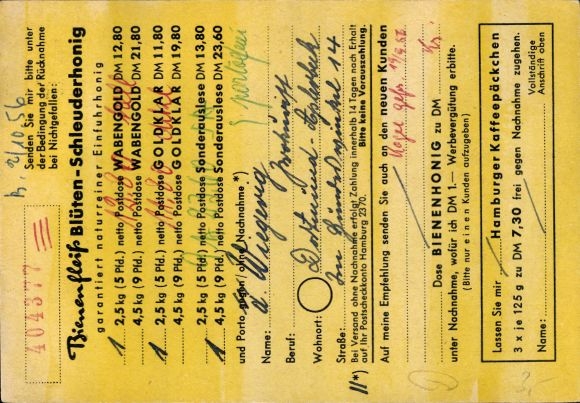 404377
2/10 56
Senden Sie mir bitte unter
der Bedingung der Rücknahme
bei Nichtgefallen:
Bienenfleiß Blüten-Schleuderhonig
garantiert naturreiner Einfuhrhonig
1 2,5 kg (5 Pfd.) netto Postdose WABENGOLD DM 12,80
4,5 kg (9 Pfd.) netto Postdose WABENGOLD DM 21,80
1 2,5 kg (5 Pfd.) netto Postdose GOLDKLAR DM 11,80
4,5 kg (9 Pfd.) netto Postdose GOLDKLAR DM 19,80
1 2,5 kg (5 Pfd.) netto Postdose Sonderauslese DM 13,80
1 4,5 kg (9 Pfd.) netto Postdose Sonderauslese DM 23,60
und Porto gegen/ohne Nachnahme.*)
Name:
Beruf:
Wohnort: Dortmund-Aplerbeck
Straße: 14
*) Bei Versand ohne Nachnahme erfolgt Zahlung innerhalb 14 Tagen nach Erhalt
auf Ihr Postscheckkonto Hamburg 2370. Bitte keine Vorauszahlung.
Auf meine Empfehlung senden Sie auch an den neuen Kunden
Dose BIENENHONIG zu DM
unter Nachnahme, wofür ich DM 1.— Werbevergütung erbitte.
(Bitte nur einen Kunden aufzugeben)
Lassen Sie mir Hamburger Kaffeepäckchen
3 x je 125 g zu DM 7,30 frei gegen Nachnahme zugehen.
Name:
Vollständige
Anschrift oben
3,-